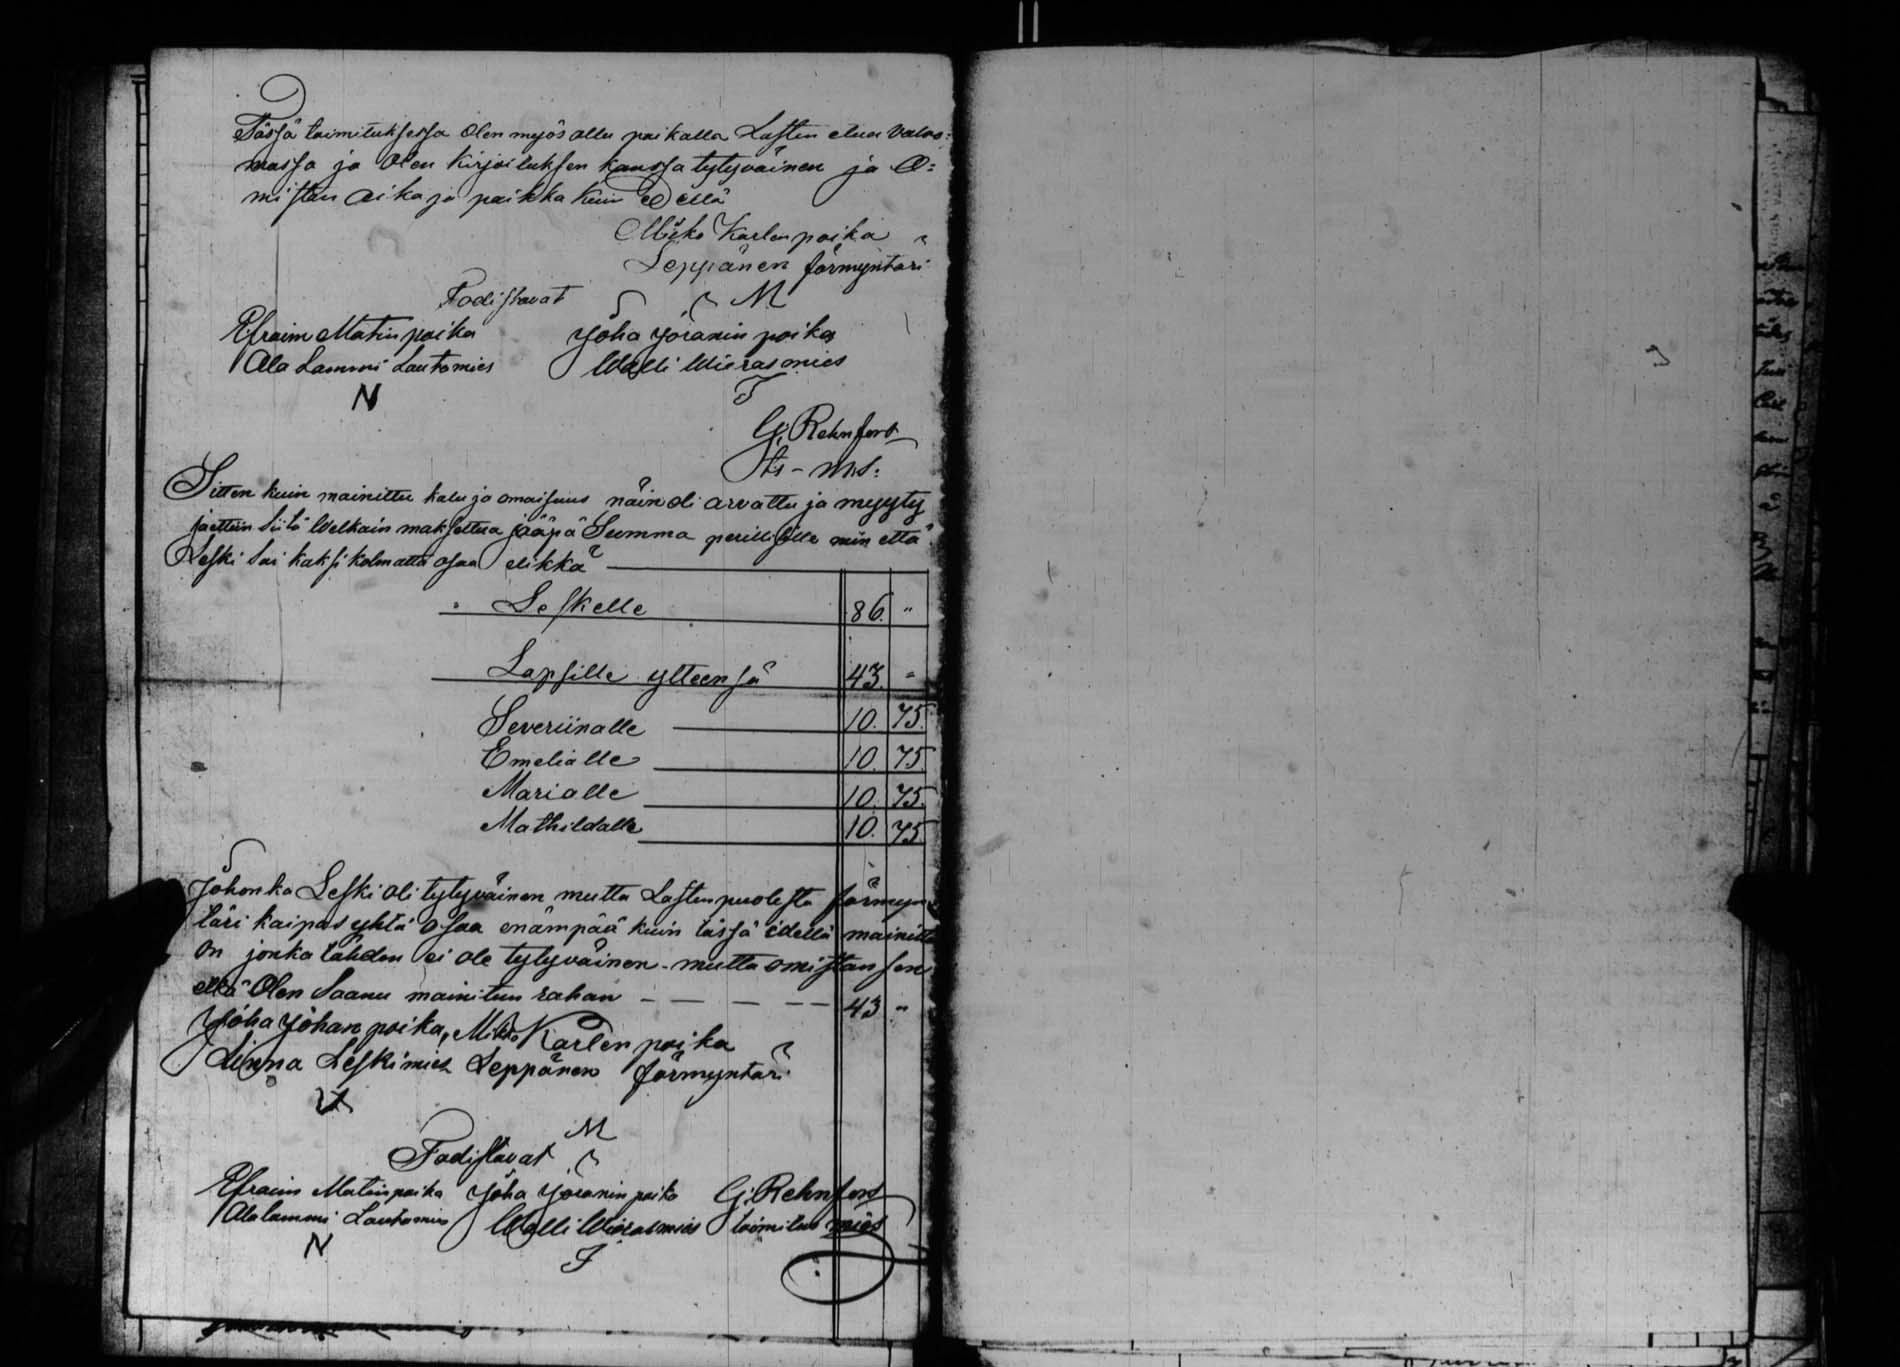 Tässä toimituksessa Olen myös ollu paikalla Lasten etua valvo=
massa ja Olen kirjoituksen kanssa tytyväinen ja O=
mistan Aika ja paikka kuin Edellä
Miko Karlen poika
Leppänen förmyntäri
Todistavat M
Efraim Matin poika Joha Joranin poika
Ala Lammi Lautamies Walli Wierasmies
N J
G. Rehnfors
ts - ms:
Sitten kuin mainittu kalu ja omaisuus näin oli arvattu ja myyty
jaettiin siitä Welkain maksettua jääpä Summa perillisille niin että
Leski Sai kaksi kolmatta osaa elikkä
Leskelle 86. "
Lapsille ylteensä 43. "
Severiinalle 10. 75.
Emelialle 10. 75.
Marialle 10. 75.
Mathildalle 10. 75.
Johonka Leski oli tytyväinen mutta Lasten puolesta förmyn
täri kaipas yhtä osaa enämpää kuin tässä edellä mainittu
on jonka tähden ei ole tytyväinen - mutta omistan sen
että Olen Saanu mainitun rahan - - - - - 43 "
Joha Johan poika, Mikko Karlen poika
Linna Leskimies Leppänen förmyntäri
M
Todistavat
Efraim Matinpoika Joha Joranin poika G. Rehnfors
Alalammi Lautamies Walli Wierasmies toimitus mies
N J